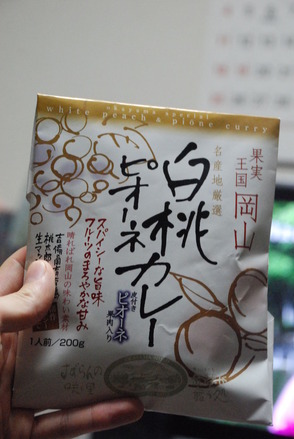 okayama special
white peach & pione curry
果実王国 岡山
名産地厳選
白桃
ピオーネカレー
皮付き
ピオーネ
果肉入り
スパイシーな旨味
フルーツのまろやかな甘み
晴れぱれ岡山の味わい素材
1人前/200g